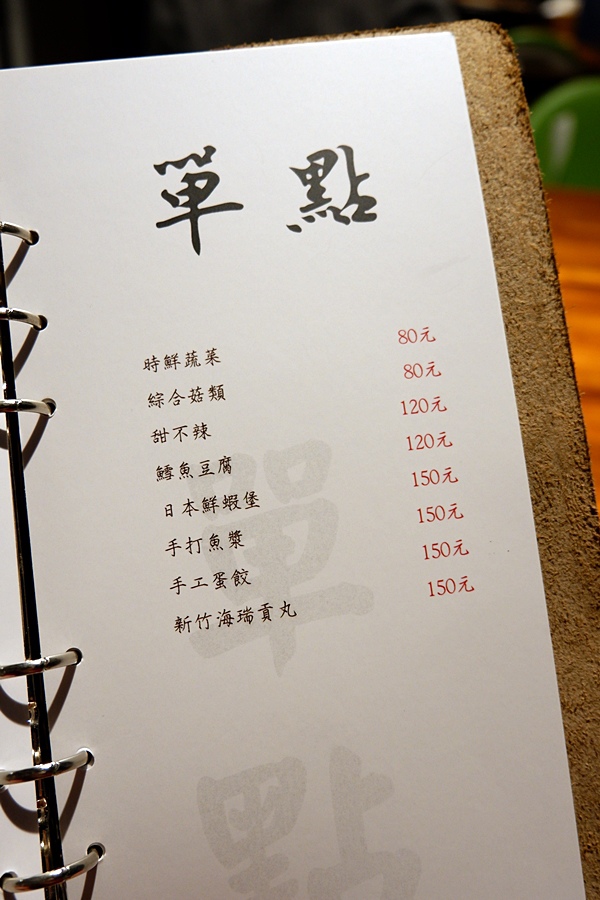 單 點
時鮮蔬菜 80元
綜合菇類 80元
甜不辣 120元
鱈魚豆腐 120元
日本鮮蝦堡 150元
手打魚漿 150元
手工蛋餃 150元
新竹海瑞貢丸 150元
單
點